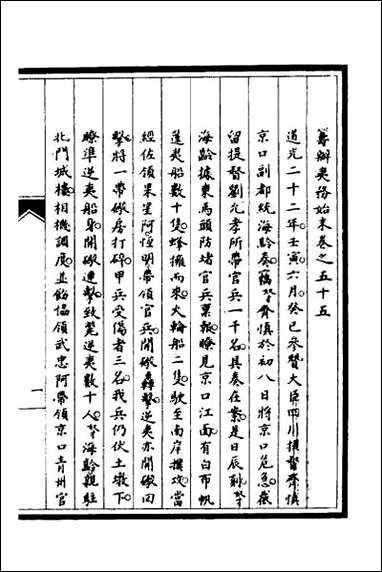 籌辦夷務始末卷之五十五
道光二十二年壬寅六月癸巳參贊大臣四川提督齊慎
京口副都統海齡奏竊䓁齊慎於初八日將京口危急截
留提督劉允孝所帶官兵一千名具奏在案是日辰刻䓁
海齡據東馬頭防堵官兵稟報瞭見京口江面有白布帆
蓬夷船數十隻蜂擁而來火輪船二隻駛至南岸撲攻當
經佐領果星阿恆明帶領官兵開礮轟擊逆夷亦開礮回
擊將一帶礮房打碎甲兵受傷者三名我兵仍伏土墩下
瞭準逆夷船身開礮連擊致斃逆夷數十人䓁海齡親駐
北門城樓相機調度並飭協領武忠阿帶領京口青州官
一